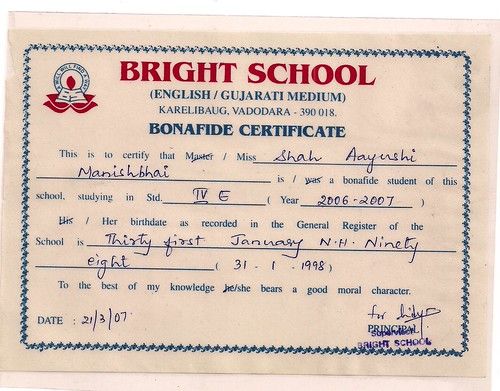 BRIGHT SCHOOL
(ENGLISH / GUJARATI MEDIUM)
KARELIBAUG, VADODARA - 390 018.
BONAFIDE CERTIFICATE
This is to certify that Master / Miss Shah Aayushi
Manishbhai is / was a bonafide student of this
school, studying in Std. IV E ( Year 2006-2007 )
His / Her birthdate as recorded in the General Register of the
School is Thirty first January N.H. Ninety
eight ( 31 - 1 - 1998 )
To the best of my knowledge he/she bears a good moral character.
DATE : 21/3/07
for
PRINCIPAL
Supervisor
BRIGHT SCHOOL